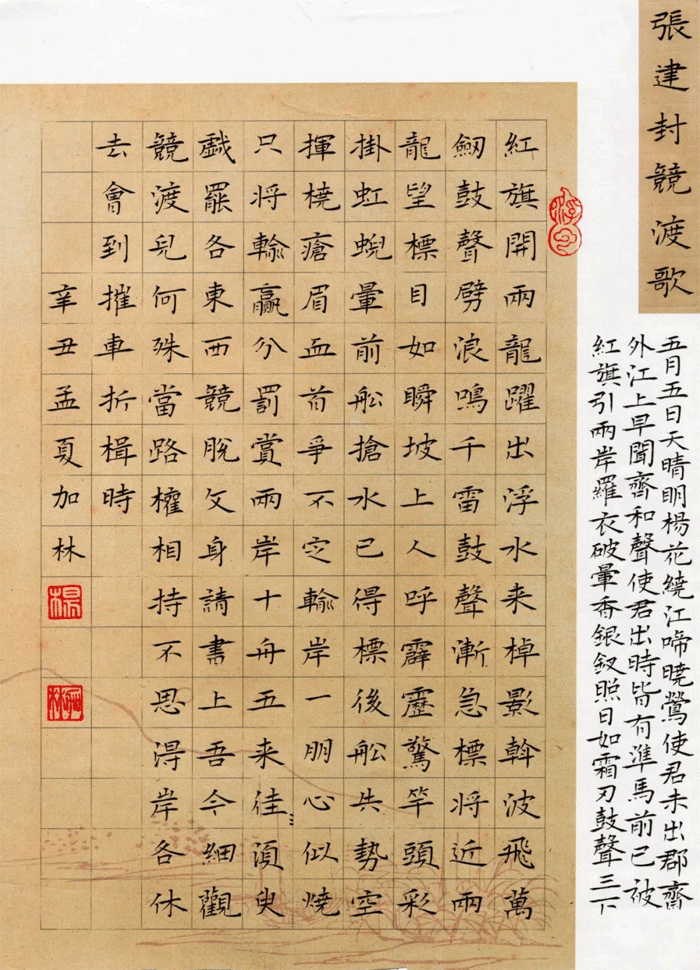 張建封競渡歌
五月五日天晴明楊花繞江啼曉鶯使君未出郡齋
外江上早聞齊和聲使君出時皆有準馬前已被
紅旗引兩岸羅衣破暈香銀釵照日如霜刃鼓聲三下
紅旗開兩龍躍出浮水来棹影斡波飛萬
劒鼓聲劈浪鳴千雷鼓聲漸急標将近兩
龍望標目如瞬坡上人呼霹靂驚竿頭彩
掛虹蜺暈前舩搶水已得標後舩失勢空
揮橈瘡眉血首爭不定輸岸一朋心似燒
只将輸贏分罰賞兩岸十舟五来徃須臾
戱罷各東西競脫文身請書上吾今細觀
競渡兒何殊當路權相持不思得岸各休
去會到摧車折楫時
辛丑孟夏加林